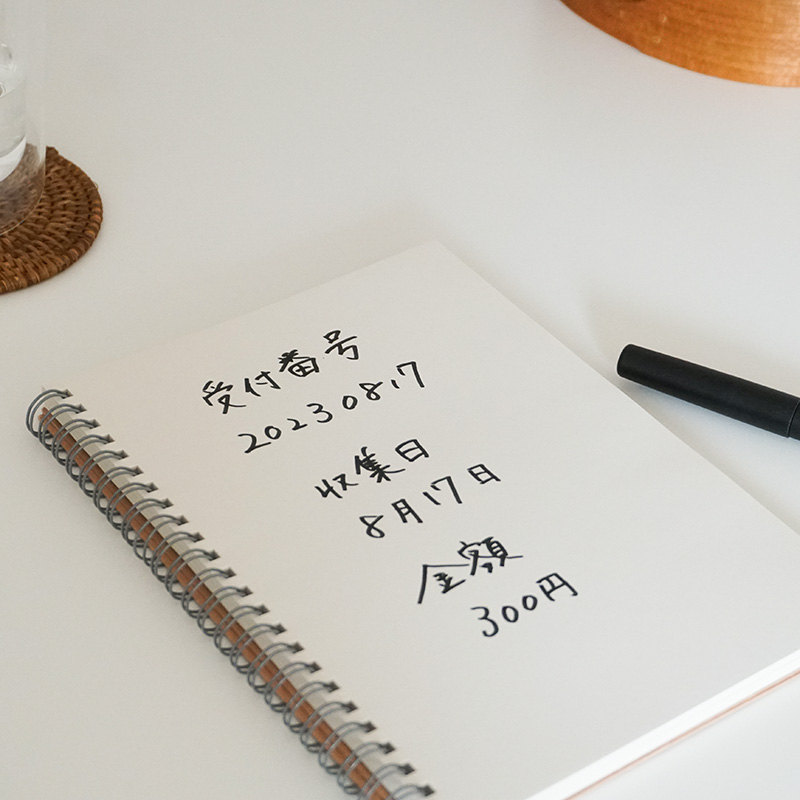 受付番号
20230817
収集日
8月17日
金額
300円